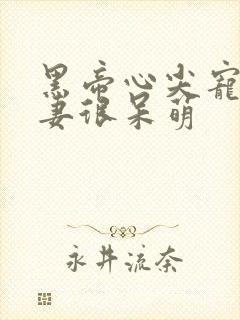 黑帝心尖宠
妻很呆萌
永井流奈